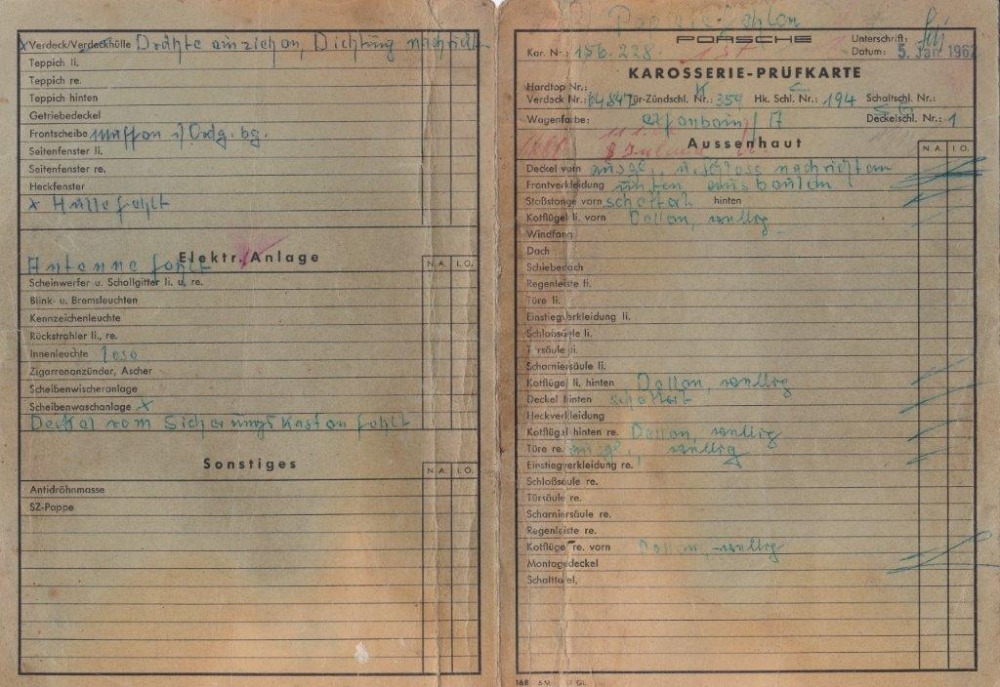 x Verdeck/Verdeckhülle Drähte einziehen, Dichtung
Teppich li.
Teppich re.
Teppich hinten
Getriebedeckel
Frontscheibe
Seitenfenster li.
Seitenfenster re.
Heckfenster
x Hülle fehlt
Elektr. Anlage
Antenne fehlt N.A. I.O.
Scheinwerfer u. Schallgitter li. u. re.
Blink- u. Bremsleuchten
Kennzeichenleuchte
Rückstrahler li., re.
Innenleuchte lose
Zigarrenanzünder, Ascher
Scheibenwischeranlage
Scheibenwaschanlage x
Deckel vom Sicherungskasten fehlt
Sonstiges
N.A. I.O.
Antidröhnmasse
SZ-Pappe
Papiere fehlen
PORSCHE
Unterschrift:
Kar. Nr.: 156.228 Datum: 5. Jan. 1962
KAROSSERIE-PRÜFKARTE
Hardtop Nr.:
Verdeck Nr.: Tür-Zündschl. Nr.: 359 Hk. Schl. Nr.: 194 Schaltschl. Nr.:
Wagenfarbe: Elfenbein Deckelschl. Nr.: 1
Aussenhaut
N.A. I.O.
Deckel vorn u. Schloss nachrichten
Frontverkleidung unten ausbeulen
Stoßstange vorn hinten
Kotflügel li. vorn Dellen, wellig
Windfang
Dach
Schiebedach
Regenleiste li.
Türe li.
Einstiegverkleidung li.
Schloßsäule li.
Türsäule li.
Scharniersäule li.
Kotflügel li. hinten Dellen, wellig
Deckel hinten
Heckverkleidung
Kotflügel hinten re. Dellen, wellig
Türe re. wellig
Einstiegverkleidung re.
Schloßsäule re.
Türsäule re.
Scharniersäule re.
Regenleiste re.
Kotflügel re. vorn Dellen, wellig
Montagedeckel
Schalttafel,